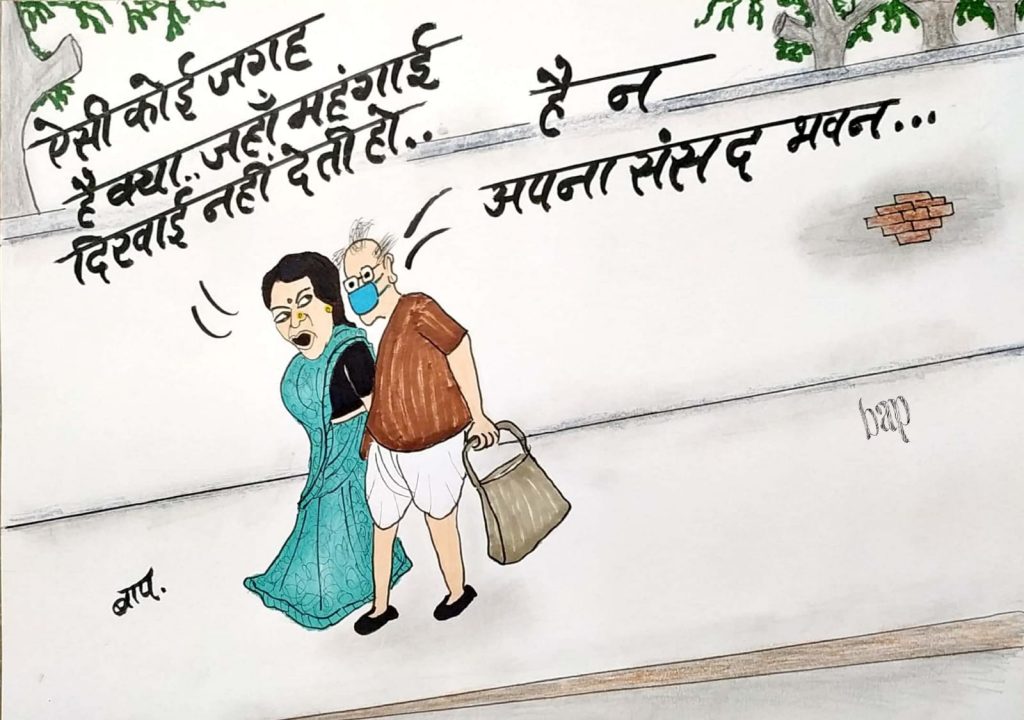 ऐसी कोई जगह
है क्या.. जहाँ महंगाई
दिखाई नहीं देती हो..
है न
अपना संसद भवन...
bap
बाप.